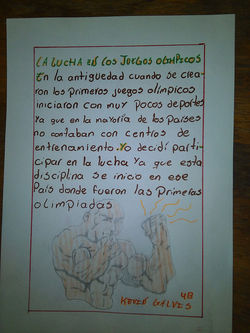 LA LUCHA EN LOS JUEGOS OLIMPICOS
En la antiguedad cuando se crea-
ron los primeros juegos olímpicos
iniciaron con muy pocos deportes
ya que en la mayoría de los países
no contaban con centros de
entrenamiento. Yo decidí parti-
cipar en la lucha ya que esta
disciplina se inicio en ese
País donde fueron las primeras
olimpiadas
4B
KEVIN GALVES